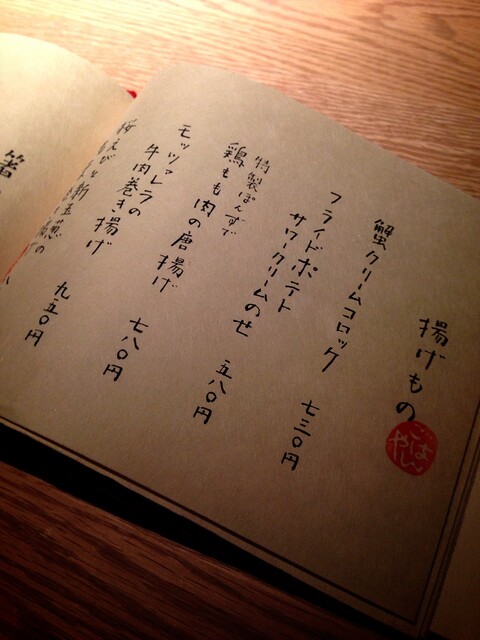 揚げもの
ごはんや
蟹クリームコロッケ 七三〇円
フライドポテト
サワークリームのせ 五八〇円
特製ぽんずで
鶏もも肉の唐揚げ 七八〇円
モッツァレラの
牛肉巻き揚げ 九五〇円
桜えびと新玉葱の
箸